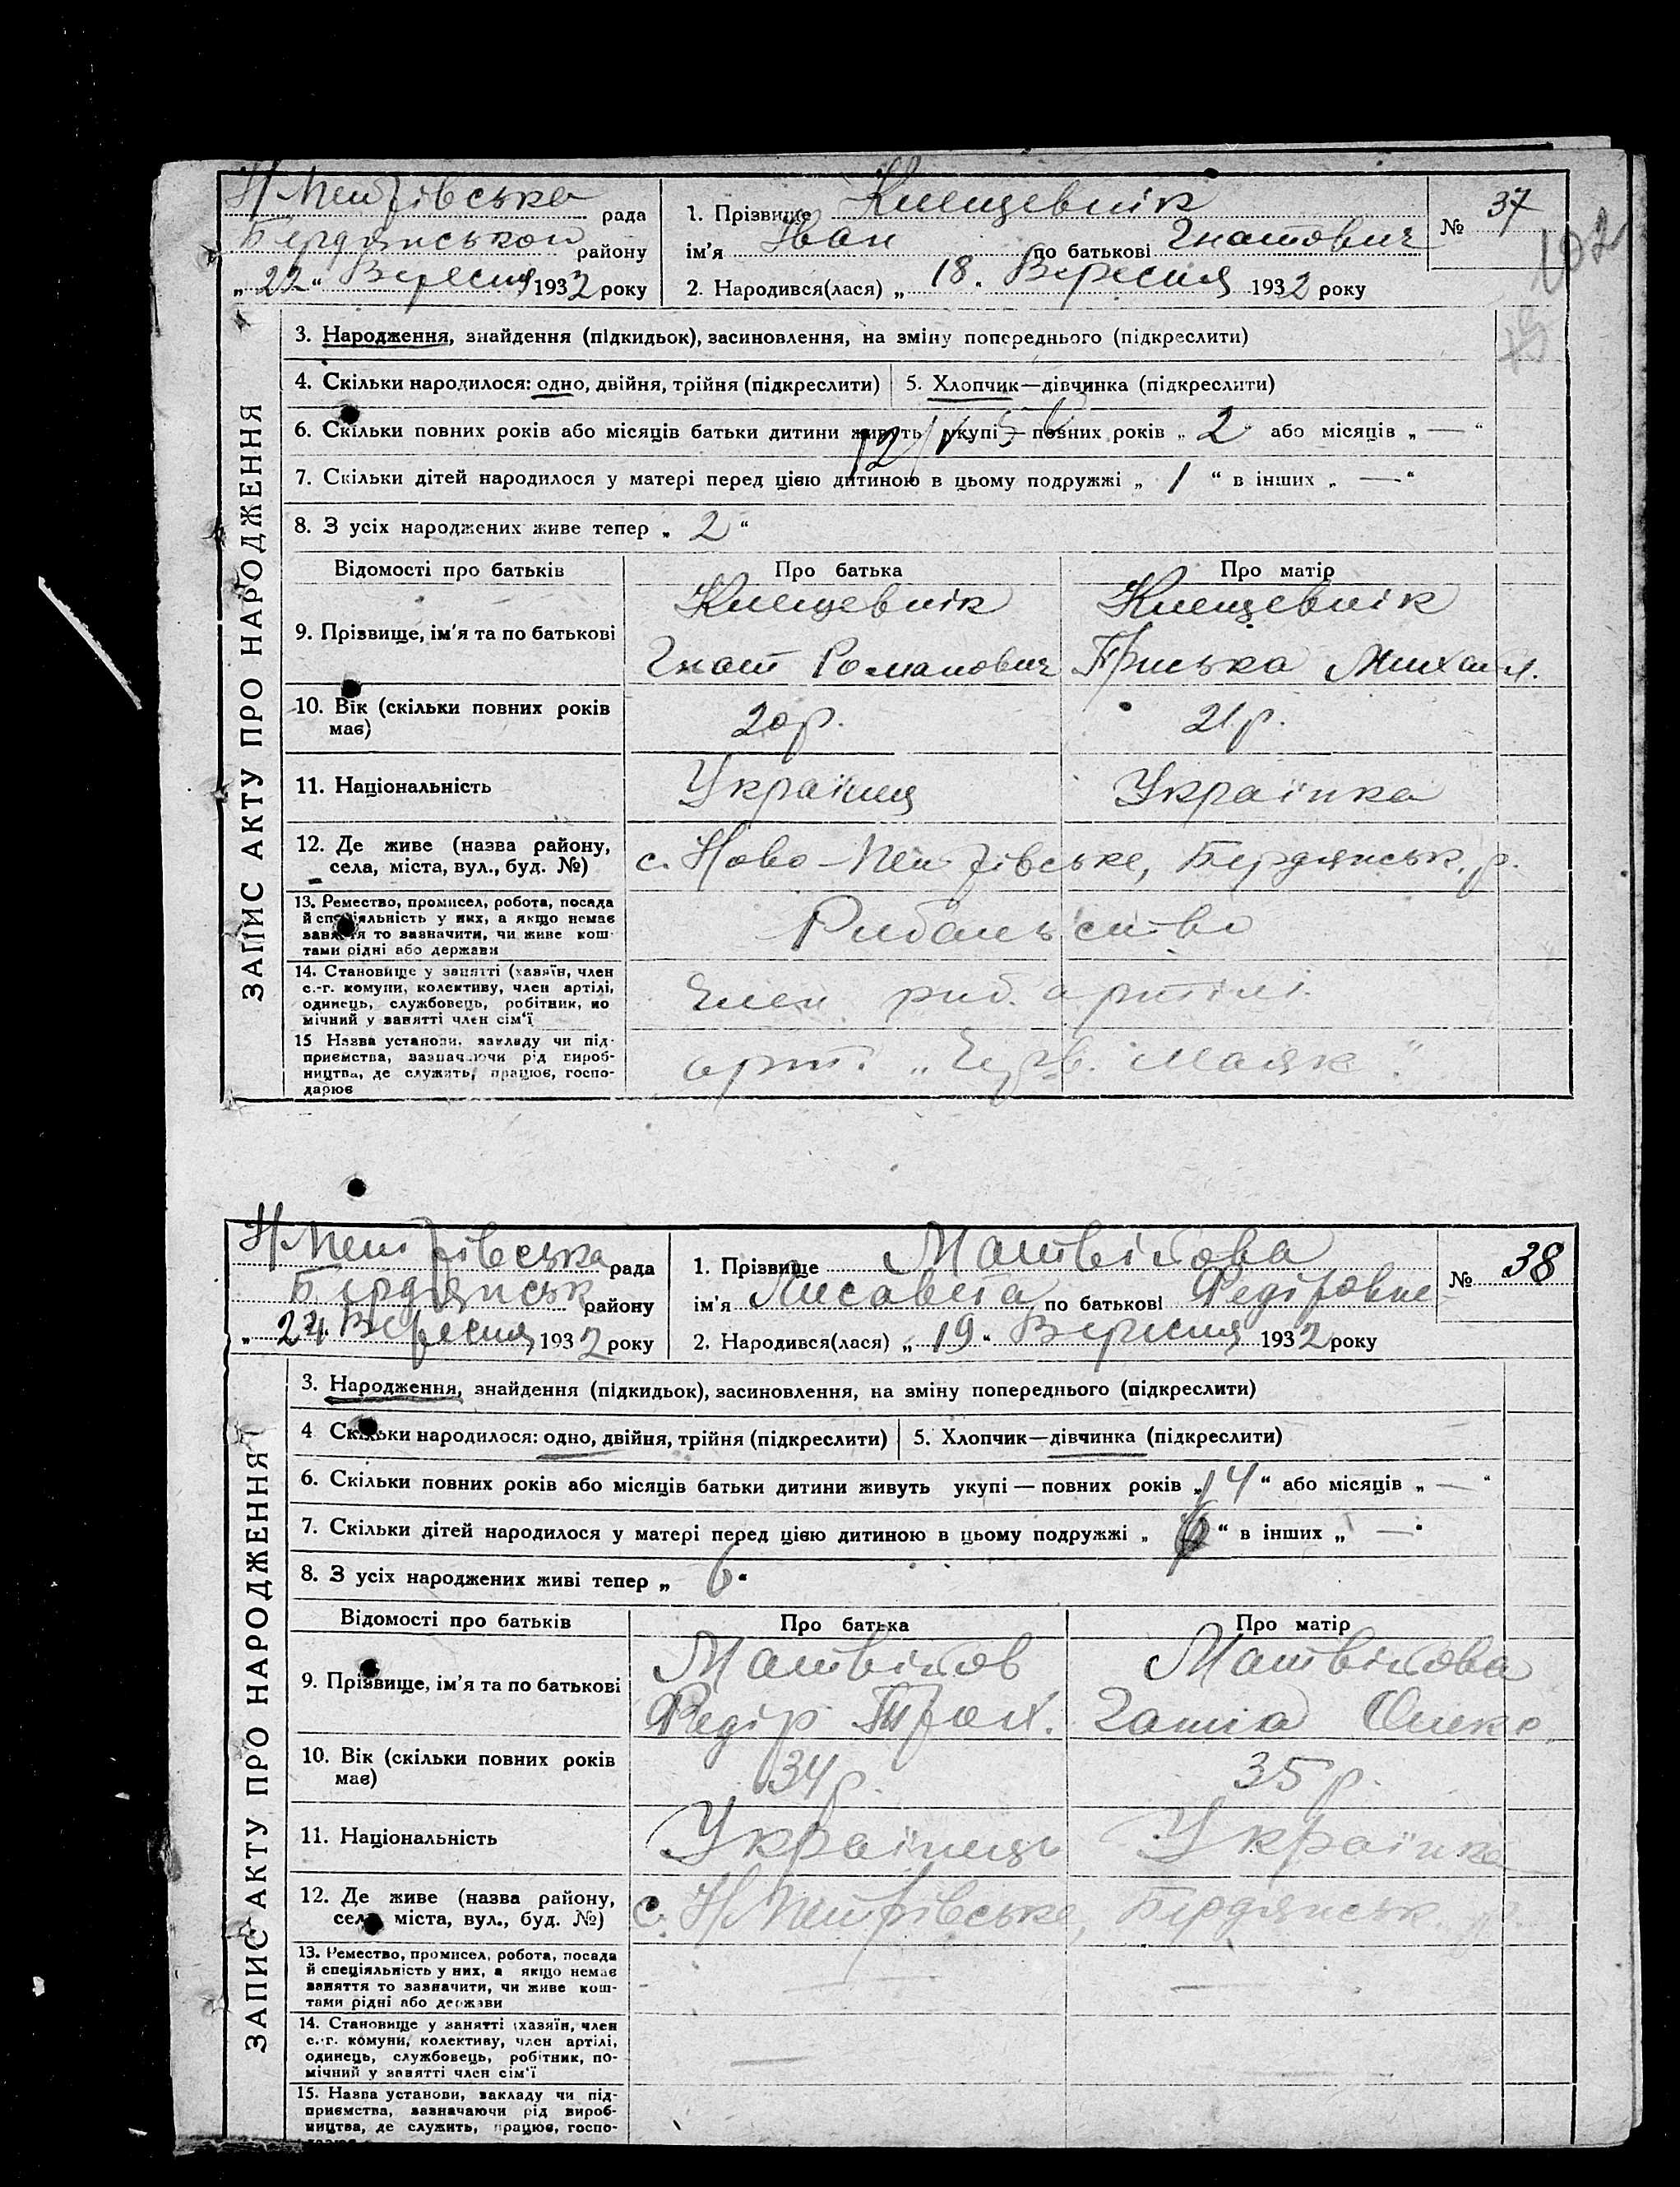 Н Петрівська рада
Бердянського району
„ 22 “ Вересня 1932 року
1. Прізвище Клещевнік
ім'я Іван по батькові Гнатович
2. Народився(лася) „ 18 “ Вересня 1932 року
№ 37
102
ЗАПИС АКТУ ПРО НАРОДЖЕННЯ
3. Народження, знайдення (підкидьок), засиновлення, на зміну попереднього (підкреслити)
4. Скільки народилося: одно, двійня, трійня (підкреслити) 5. Хлопчик—дівчинка (підкреслити)
6. Скільки повних років або місяців батьки дитини живуть укупі — повних років „ 2 “ або місяців „ — “
7. Скільки дітей народилося у матері перед цією дитиною в цьому подружжі „ 1 “ в інших „ — “
8. З усіх народжених живе тепер „ 2 “
Відомості про батьків Про батька Про матір
9. Прізвище, ім'я та по батькові Клещевнік Клещевнік
Гнат Романович Пріська Михайл.
10. Вік (скільки повних років має) 20 р. 21 р.
11. Національність Українец Українка
12. Де живе (назва району, села, міста, вул., буд. №) с. Ново-Петрівське, Бердянськ. р.
13. Ремество, промисел, робота, посада
й спеціяльність у них, а якщо немає
заняття то зазначити, чи живе кош-
тами рідні або держави
Рибальство
14. Становище у занятті (хазяїн, член
с.-г. комуни, колективу, член артілі,
одинець, службовець, робітник, по
мічний у занятті член сім'ї
Член риб. артілі
15 Назва установи, закладу чи під-
приємства, зазначаючи рід вироб-
ництва, де служить, працює, госпо-
дарює
арт. „Черв. Маяк“
Н Петрівська рада
Бердянськ району
„ 24 “ Вересня 1932 року
1. Прізвище Матвієова
ім'я Лисавета по батькові Федіровне
2. Народився(лася) „ 19 “ Вересня 1932 року
№ 38
ЗАПИС АКТУ ПРО НАРОДЖЕННЯ
3. Народження, знайдення (підкидьок), засиновлення, на зміну попереднього (підкреслити)
4 Скільки народилося: одно, двійня, трійня (підкреслити) 5. Хлопчик—дівчинка (підкреслити)
6. Скільки повних років або місяців батьки дитини живуть укупі — повних років „ 14 “ або місяців „ — “
7. Скільки дітей народилося у матері перед цією дитиною в цьому подружжі „ “ в інших „ — “
8. З усіх народжених живі тепер „ 6 “
Відомості про батьків Про батька Про матір
9. Прізвище, ім'я та по батькові
Федір Гаша
10. Вік (скільки повних років має) 34 р. 35 р.
11. Національність Українець Українка
12. Де живе (назва району, села, міста, вул., буд. №) с. Н Петрівське, Бердянськ. р.
13. Ремество, промисел, робота, посада
й спеціяльність у них, а якщо немає
заняття то зазначити, чи живе кош-
тами рідні або держави
— —
14. Становище у занятті (хазяїн, член
с.-г. комуни, колективу, член артілі,
одинець, службовець, робітник, по-
мічний у занятті член сім'ї
— —
15. Назва установи, закладу чи під-
приємства, зазначаючи рід вироб-
ництва, де служить, працює, госпо-